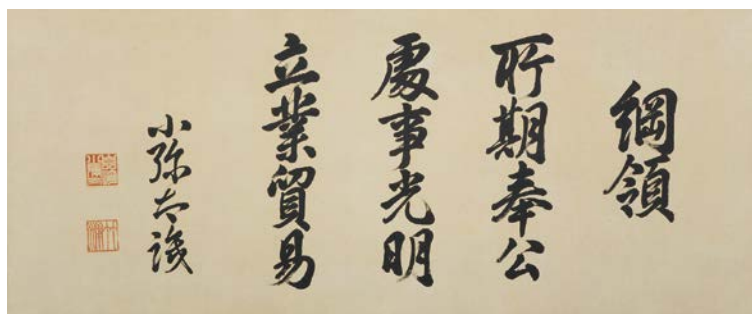 綱領
所期奉公
處事光明
立業貿易
小弥太